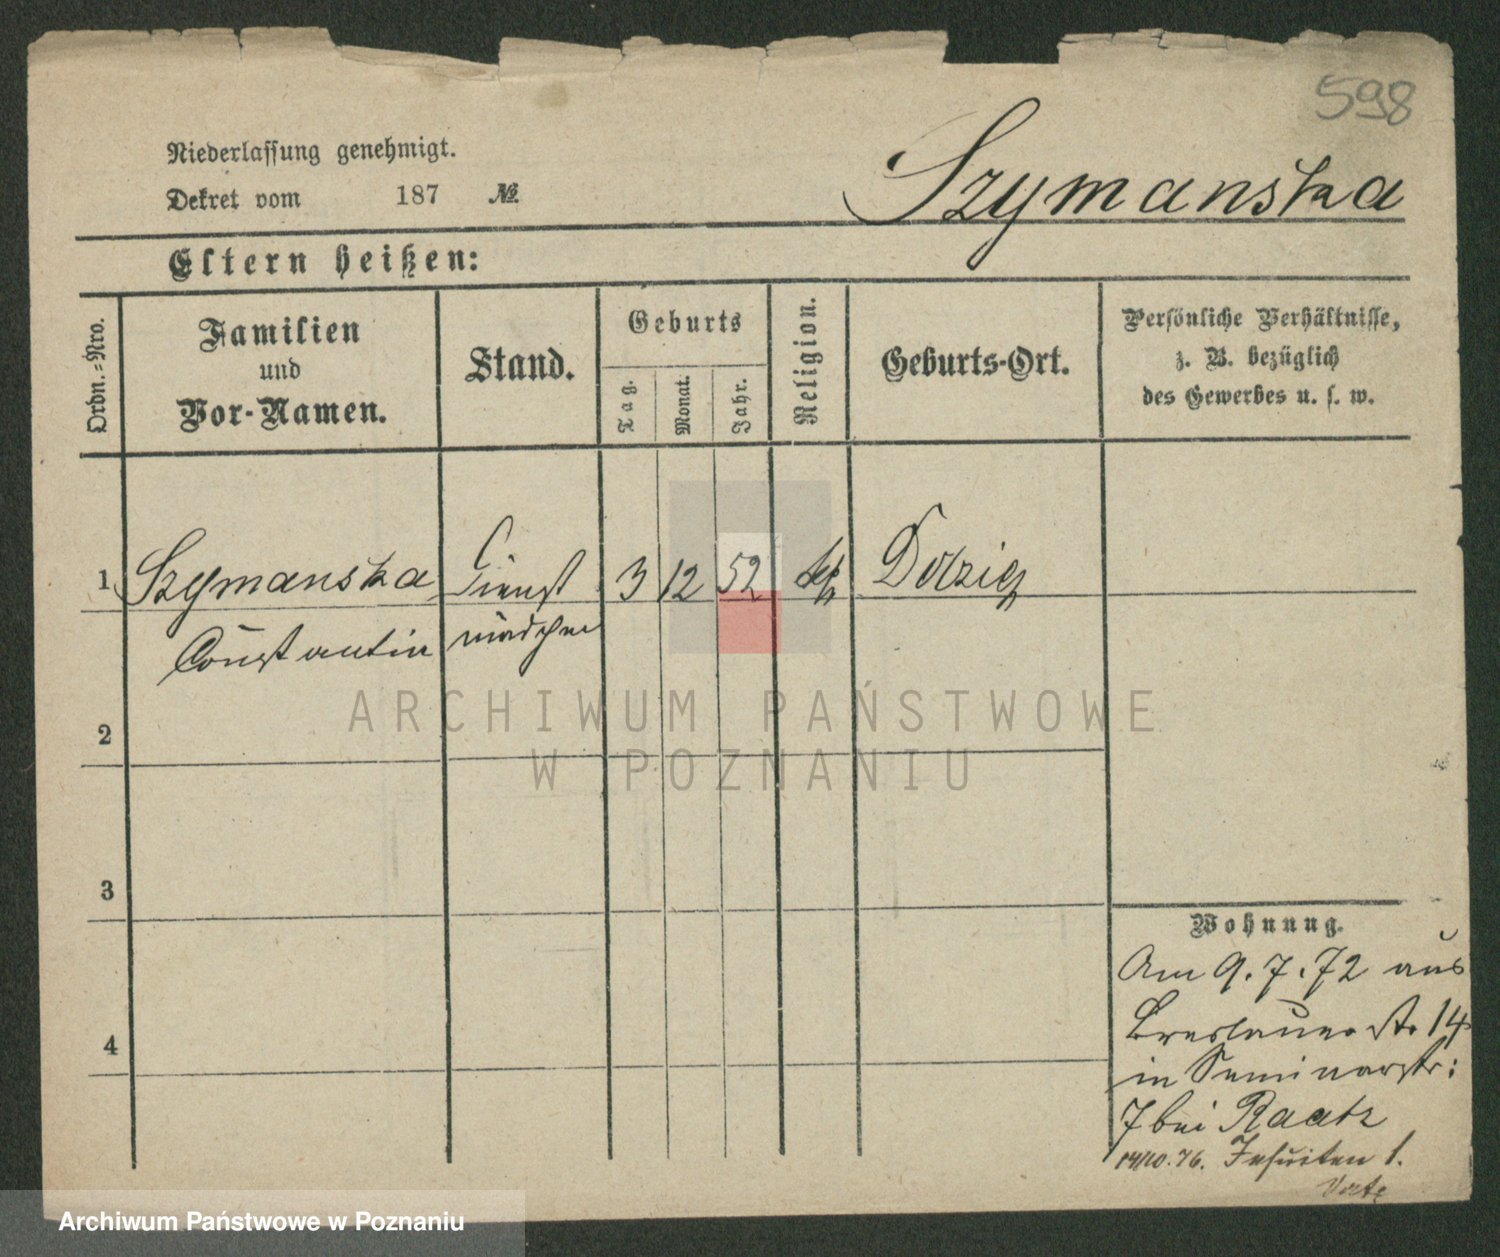 598
Niederlassung genehmigt.
Dekret vom 187 №
Szymanska
Eltern heißen:
Ordn.-Nro.
Familien
und
Vor-Namen.
Stand.
Geburts
Tag.
Monat.
Jahr.
Religion.
Geburts-Ort.
Persönliche Verhältnisse,
z. B. bezüglich
des Gewerbes u. s. w.
1 Szymanska Dienst 3 12 52 Dolzig
Constantin mädchen
2
ARCHIWUM PAŃSTWOWE
W POZNANIU
3
Wohnung.
Am 9.7.72 aus
Breslauer str 14
4
in Seminarstr:
7 bei Raatz
14/10.76. Jesuiten 1.
Archiwum Państwowe w Poznaniu